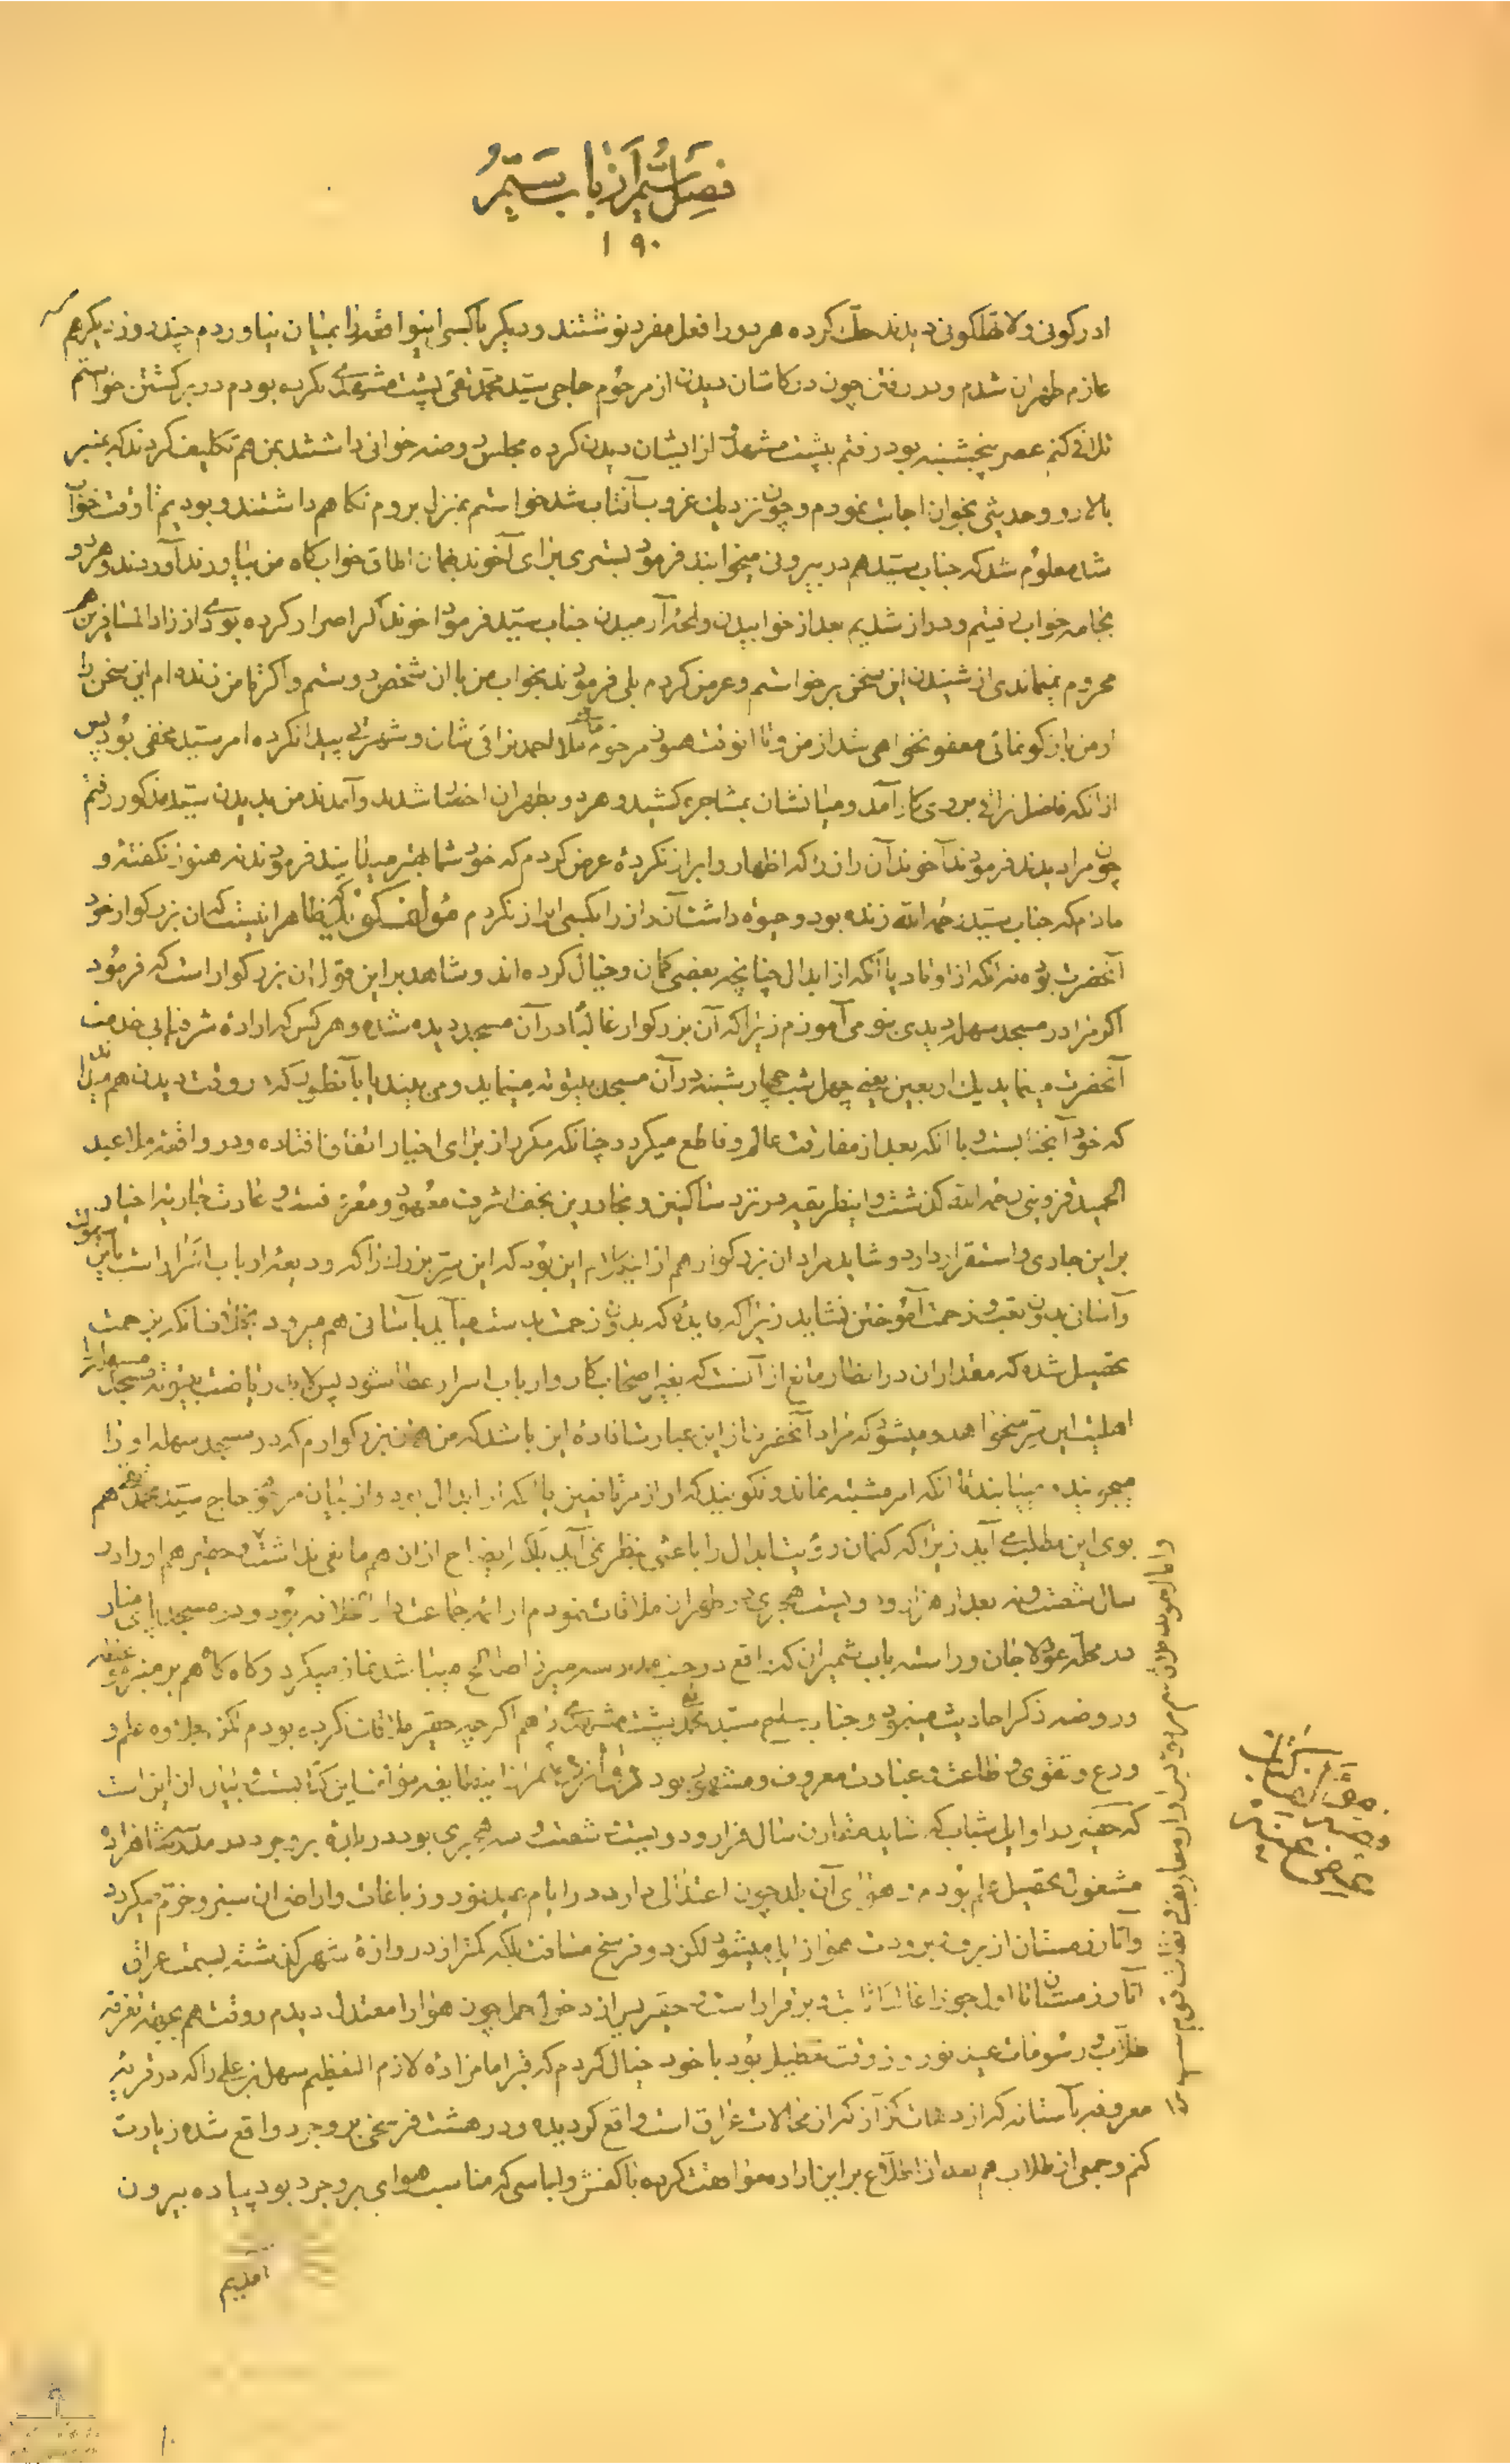 فصل ششم از باب ستم
۱۹۰
ادرکونی ولاتظلمونی دیدند حک کرده هر دو را فعل مفرد نوشتند و دیگر باکسی اینواقعه را بمیان نیاوردم چند روز دیگر هم
عازم طهران شدم و در رفتن چون در کاشان دیدن از مرحوم حاجی سید محمد تقی پشت مشهدی نکرده بودم در برگشتن خواستم
تلافی کنم عصر پنجشنبه بود رفتم به پشت مشهد و از ایشان دیدن کرده مجلس روضه خوانی داشتند بمن هم تکلیف کردند که بمنبر
بالا رو و حدیثی بخوان اجابت نمودم و چون نزدیک غروب آفتاب شد خواستم بمنزل بروم نگاهم داشتند و بودیم تا وقت خواب
شد معلوم شد که جناب سید هم در بیرونی میخوابند فرمود بستری برای آخوند بهمان اطاق خوابگاه من بیاورند آوردند و هر دو
بجامه خواب رفتیم و دراز شدیم بعد از خوابیدن و لحظه آرمیدن جناب سید فرمود آخوند اگر اصرار کرده بودی از زاد المسافرین هم
محروم نمیماندی از شنیدن این سخن برخواستم و عرض کردم بلی فرمودند بخواب من با آن شخص دوستم و اگر تا من زنده ام این سخن را
از من بازگو نمائی معفو نخواهی شد از من و تا انوقت هنوز مرحوم حاجی ملا احمد نراقی شان و شهرتی پیدا نکرده امر سید مخفی بود پس
از آنکه فاضل نراقی بروی کار آمد و میانشان بمشاجره کشید و هر دو بطهران احضار شدند و آمدند من بدیدن سید مذکور رفتم
چون مرا دیدند فرمودند آخوند آن راز را که اظهار و ابراز نکرده عرض کردم که خود شما بهتر میدانید فرمودند نه هنوز نگفته و
مادام که جناب سید رحمه الله زنده بود و حیوه داشت آن راز را بکسی ابراز نکردم مؤلف گوید ظاهر اینست که آن بزرگوار خود
آنحضرت بوده نه آنکه از اوتاد یا آنکه از ابدال چنانچه بعضی گمان و خیال کرده اند و شاهد بر این قول آن بزرگوار است که فرمود
اگر مرا در مسجد سهله دیدی بتو می آموزم زیرا که آن بزرگوار غالبا در آن مسجد دیده شده و هر کس که اراده شرفیابی خدمت
آنحضرت مینماید یک اربعین یعنی چهل شب چهارشنبه در آن مسجد بیتوته مینماید و می بیند یا بآنطور که در وقت دیدن هم میداند
که خود آنجنابست و یا آنکه بعد از مفارقت عالم و قاطع میگردد چنانکه مکرر از برای اخیار اتفاق افتاده و در واقعه ملا عبد
الحمید قزوینی رحمه الله گذشت و اینطریقه در نزد ساکنین و مجاورین نجف اشرف معهود و معروفست و عادت جاریه اخیار
بر این جاری و استقرار دارد و شاید مراد آن بزرگوار هم از این کلام این بود که این سر بزرگ را که ودیعه ارباب اسرار است باین سهولت
و آسانی بدون تعب و زحمت آموختن نشاید زیرا که فایده که بدون زحمت بدست میآید بآسانی هم میرود بخلاف آنکه بزحمت
تحصیل شده که مقدار آن در انظار مانع از آنست که بغیر اصحاب کار و ارباب اسرار عطا شود پس لابد ریاضت بیتوته مسجد سهله را
اهلیت این سر میخواهد و میشود که مراد آنحضرت از این عبارت افاده این باشد که من همان بزرگوارم که در مسجد سهله او را
میجویند و مییابند تا آنکه امر مشتبه نماند و نگویند که از
بوی این مطلب می آید زیرا که کتمان رؤیت ابدال را باعثی بنظر نمی آید بلکه ایضاح از آن هم مانعی نداشت و حقیر هم او را در
سال شصت و نه بعد از هزار و دویست هجری در طهران ملاقات نمودم از ائمه جماعت دار الخلافه بود و در مسجد پای منار
در محله عودلاجان و راسته باب شمیران که واقع در جنب مدرسه میرزا صالح میباشد نماز میکرد و گاه گاه هم بر منبر موعظه
و روضه و ذکر احادیث مینمود و جناب حاج سید محمد تقی پشت مشهدی را هم اگرچه حقیر ملاقات نکرده بودم لکن بجلوه علم و
ورع و تقوی و طاعت و عبادت معروف و مشهور بود
که حقیر در اوایل شباب که شاید مقارن سال هزار و دویست و شصت و سه هجری بود در بلده بروجرد در مدرسه شاهزاده
مشغول تحصیل علم بودم و هوای آن بلد چون اعتدالی دارد در ایام عید نوروز باغات و اراضی آن سبز و خرم میگردد
و آثار زمستان از برف و برودت هوا زایل میشود لکن دو فرسخ مسافت بلکه کمتر از دروازه شهر گذشته بسمت عراق
آثار زمستان تا اول جوزا غالبا ثابت و برقرار است حقیر پس از دخول حمل چون هوا را معتدل دیدم و وقت هم بجهة تفرقه
طلاب و رسومات عید نوروز وقت تعطیل بود با خود خیال کردم که قبر امامزاده لازم التعظیم سهل بن علی را که در قریه
معروفه بآستانه که از دهات کزاز که از محالات عراق است واقع گردیده و در هشت فرسخی بروجرد واقع شده زیارت
کنم و جمعی از طلاب هم بعد از اطلاع بر این اراده موافقت کرده با کفش و لباسی که مناسب هوای بروجرد بود پیاده بیرون
آمدیم